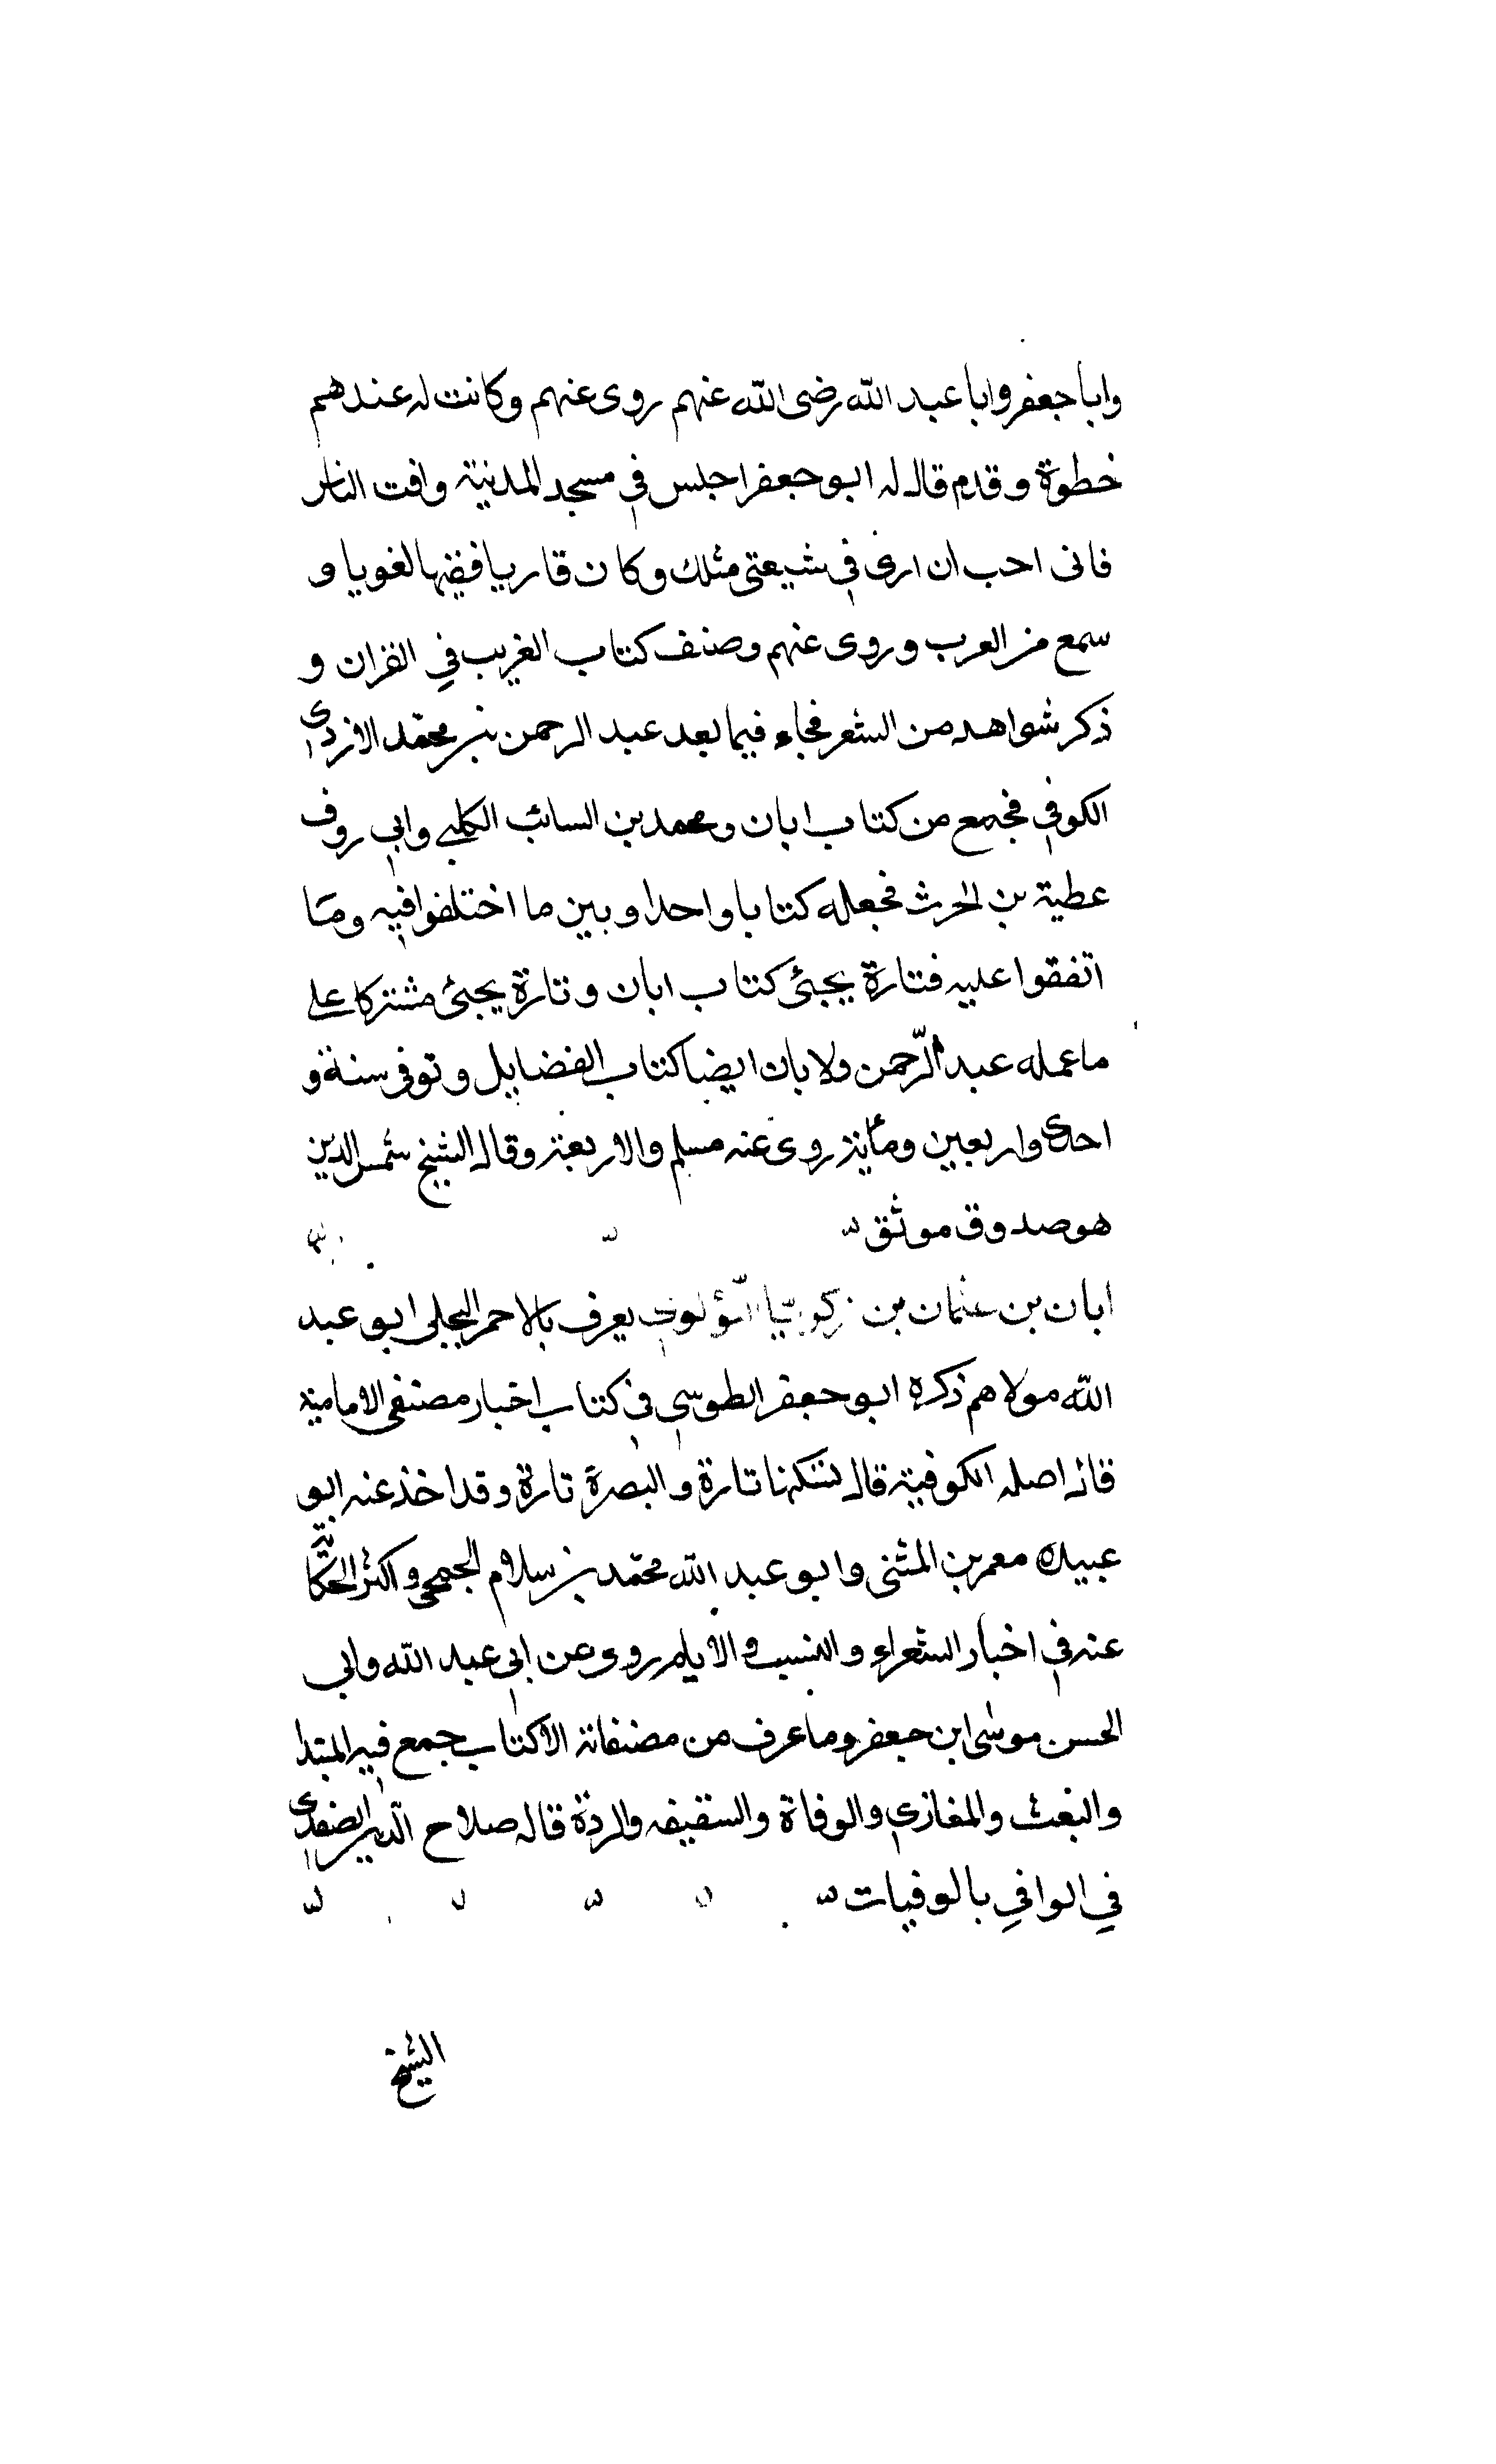 وابا جعفر وابا عبد الله رضى الله عنهم روى عنهم وكانت له عندهم
خطوة وقدم قال له ابو جعفر اجلس في مسجد المدنية وافت الناس
فانى احب ان ارى في شيعتى مثلك وكان قاريا فقيها لغويا و
سمع من العرب وروى عنهم وصنف كتاب الغريب في القران و
ذكر شواهده من الشعر فجاء فيما بعد عبد الرحمن بن محمّد الازدى
الكوفي فجمع من كتاب ابان ومحمد بن السائب الكلبي وابي روف
عطية بن الحرث فجعله كتابا واحدا وبين ما اختلفوا فيه وما
اتفقوا عليه فتارة يجيئ كتاب ابان وتارة يجيئ مشتركا على
ما عمله عبد الرّحمن ولابان ايضا كتاب الفضايل وتوفى سنة و
احدى واربعين ومأية روى عنه مسلم والاربعة وقال الشيخ شمس الدين
هو صدوق موثق
ابان بن عثمان بن زكريا يعرف بالاحمر البجلى ابو عبد
الله مولاهم ذكره ابو جعفر الطوسي في كتاب اخبار مصنفى الامامية
قال اصله الكوفية قال تسكنها تارة والبصرة تارة وقد اخذ عنه ابو
عبيده معمر بن المثنى وابو عبد الله محمّد بن سلام الجمحي واكثر الحكاية
عنه في اخبار الشعراء والنسب والايام روى عن ابي عبد الله وابي
الحسن موسى ابن جعفر وما عرف من مصنفاته الا كتاب جمع فيه المبتدا
والبعث والمغازي والوفاة والسقيفه والردة قاله صلاح الدين الصفدى
في الوافي بالوفيات
الشيخ